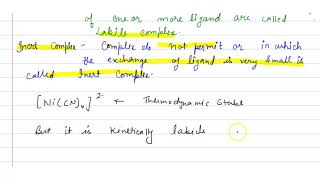 of one or more ligand are called
Labile complex.
Inert Complex - Complex do not permit or in which
the exchange of ligand is very small is
called Inert Complex.
[Ni(CN)4]2- ← Thermodynamic Stable
But it is kinetically labile